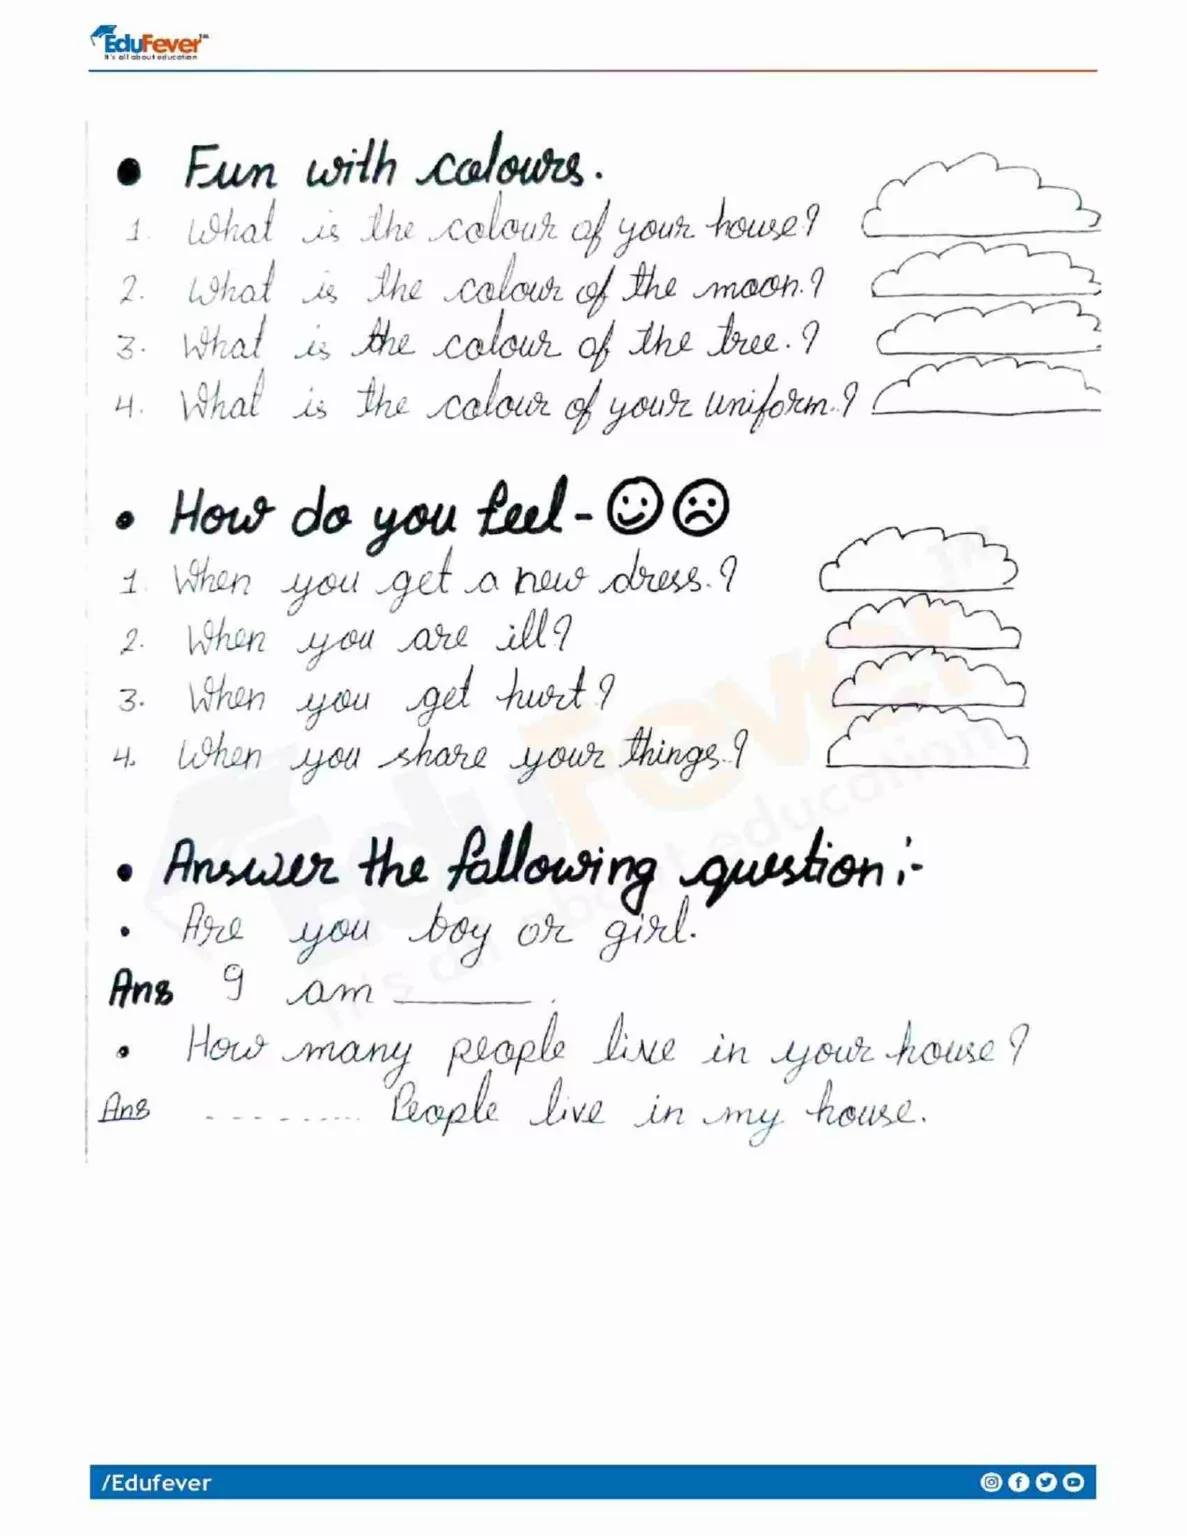 EduFever™
It's all about education
• Fun with colours.
1. What is the colour of your house?
2. What is the colour of the moon.?
3. What is the colour of the tree.?
4. What is the colour of your uniform.?
• How do you feel -
1. When you get a new dress.?
2. When you are ill?
3. When you get hurt?
4. When you share your things.?
• Answer the following question :-
• Are you boy or girl.
Ans I am ______.
• How many people live in your house?
Ans --------- People live in my house.
EduFever™
It's all about education
/Edufever